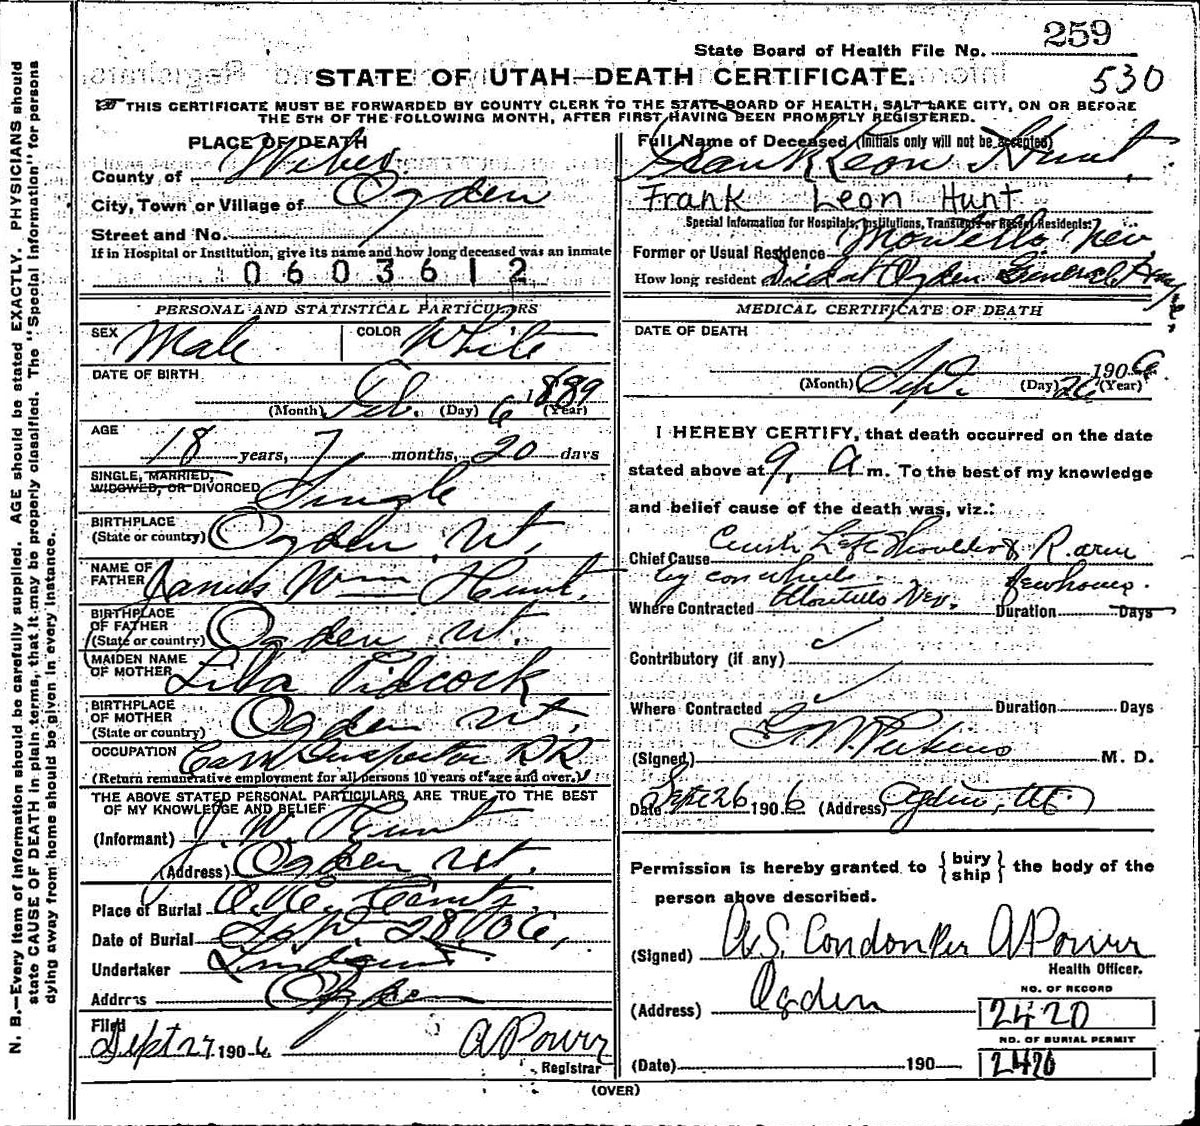 N. B.—Every item of information should be carefully supplied. AGE should be stated EXACTLY. PHYSICIANS should
state CAUSE OF DEATH in plain terms, that it may be properly classified. The "Special Information" for persons
dying away from home should be given in every instance.
State Board of Health File No. 259
STATE OF UTAH—DEATH CERTIFICATE.
530
THIS CERTIFICATE MUST BE FORWARDED BY COUNTY CLERK TO THE STATE BOARD OF HEALTH, SALT LAKE CITY, ON OR BEFORE
THE 5TH OF THE FOLLOWING MONTH, AFTER FIRST HAVING BEEN PROMPTLY REGISTERED.
PLACE OF DEATH
County of Weber
City, Town or Village of Ogden
Street and No.
If in Hospital or Institution, give its name and how long deceased was an inmate
0603612
Full Name of Deceased (Initials only will not be accepted)
Frank Leon Hunt
Frank Leon Hunt
Special Information for Hospitals, Institutions, Transients or Recent Residents:
Former or Usual Residence Montello Nev
How long resident Died at Ogden General Hospital
PERSONAL AND STATISTICAL PARTICULARS
SEX Male COLOR White
DATE OF BIRTH
(Month) Feb. (Day) 6 1889 (Year)
AGE
18 years, 7 months, 20 days
SINGLE, MARRIED,
WIDOWED, OR DIVORCED Single
BIRTHPLACE
(State or country) Ogden, Ut.
NAME OF
FATHER James Wm Hunt.
BIRTHPLACE
OF FATHER
(State or country) Ogden Ut.
MAIDEN NAME
OF MOTHER Pidcock
BIRTHPLACE
OF MOTHER
(State or country) Ogden Ut.
OCCUPATION Car Inspector RR
(Return remunerative employment for all persons 10 years of age and over.)
THE ABOVE STATED PERSONAL PARTICULARS ARE TRUE TO THE BEST
OF MY KNOWLEDGE AND BELIEF
(Informant) J. W. Hunt
(Address) Ogden Ut.
Place of Burial
Date of Burial Sept. 28, 06,
Undertaker Lindquist
Address Ogden
Filed
Sept 27 1906. A Power
Registrar
MEDICAL CERTIFICATE OF DEATH
DATE OF DEATH
(Month) Sept. (Day) 26 1906 (Year)
I HEREBY CERTIFY, that death occurred on the date
stated above at 9 a m. To the best of my knowledge
and belief cause of the death was, viz.:
Chief Cause Crush Left Shoulder & R. arm
by car wheels.
Where Contracted Montello Nev. Duration few hours. Days
Contributory (if any) ✓
Where Contracted ✓ Duration Days
(Signed) G. W. Perkins M. D.
Date Sept 26 1906 (Address) Ogden, Ut.
Permission is hereby granted to {bury ship} the body of the
person above described.
(Signed) A.S. Condon Per A Power
Health Officer.
(Address) Ogden
NO. OF RECORD
2420
NO. OF BURIAL PERMIT
2420
(Date) 190
(OVER)